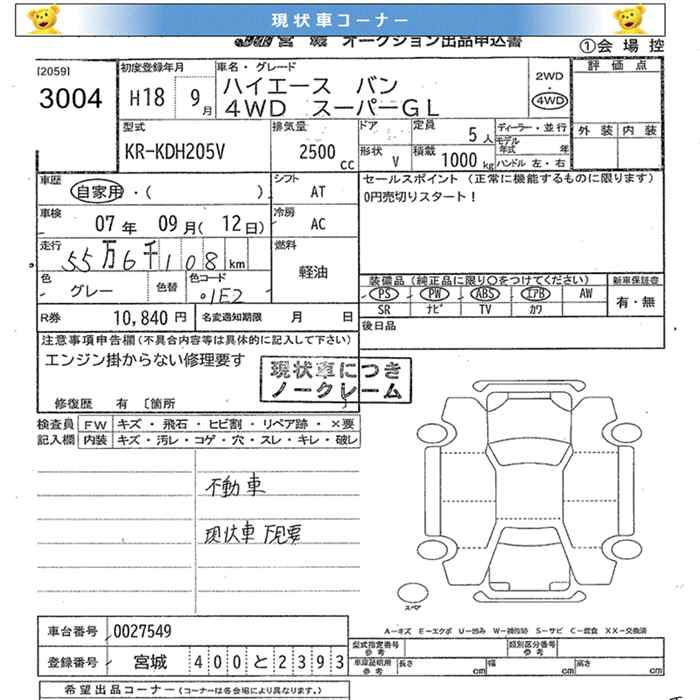 現状車コーナー
JU 宮城 オークション出品申込書
①会場控
[2059]
3004
初度登録年月
H18 9月
車名・グレード
ハイエース バン
4WD スーパーGL
2WD
・
4WD
評価点
外装 内装
型式
KR-KDH205V
排気量
2500 cc
ドア
形状 V
定員 5人
積載 1000 kg
ディーラー・並行
モデル年式 年
ハンドル 左・右
車歴
自家用・( )
シフト AT
セールスポイント (正常に機能するものに限ります)
0円売切りスタート！
車検
07年 09月(12日)
冷房 AC
走行
55万6千108km
燃料
軽油
色 グレー
色替
色コード
1E2
装備品(純正品に限り○をつけてください)
新車保証書
PS PW ABS エアB AW
有・無
SR ナビ TV カワ
R券 10,840円
名変通知期限 月 日
後日品
注意事項申告欄(不具合内容等は具体的に記入して下さい)
エンジン掛からない修理要す
現状車につき
ノークレーム
修復歴 有 [箇所 ]
検査員記入欄
FW キズ・飛石・ヒビ割・リペア跡・×要
内装 キズ・汚レ・コゲ・穴・スレ・キレ・破レ
不動車
現状車 下見要
スペア
A－キズ E－エクボ U－凹み W－補修跡 S－サビ C－腐食 XX－交換済
車台番号 0027549
型式指定番号 参考
類別区分番号 参考
登録番号 宮城 400と2393
車庫証明用 参考
長さ cm 幅 cm 高さ cm
希望出品コーナー (コーナーは各会場により異なります。)